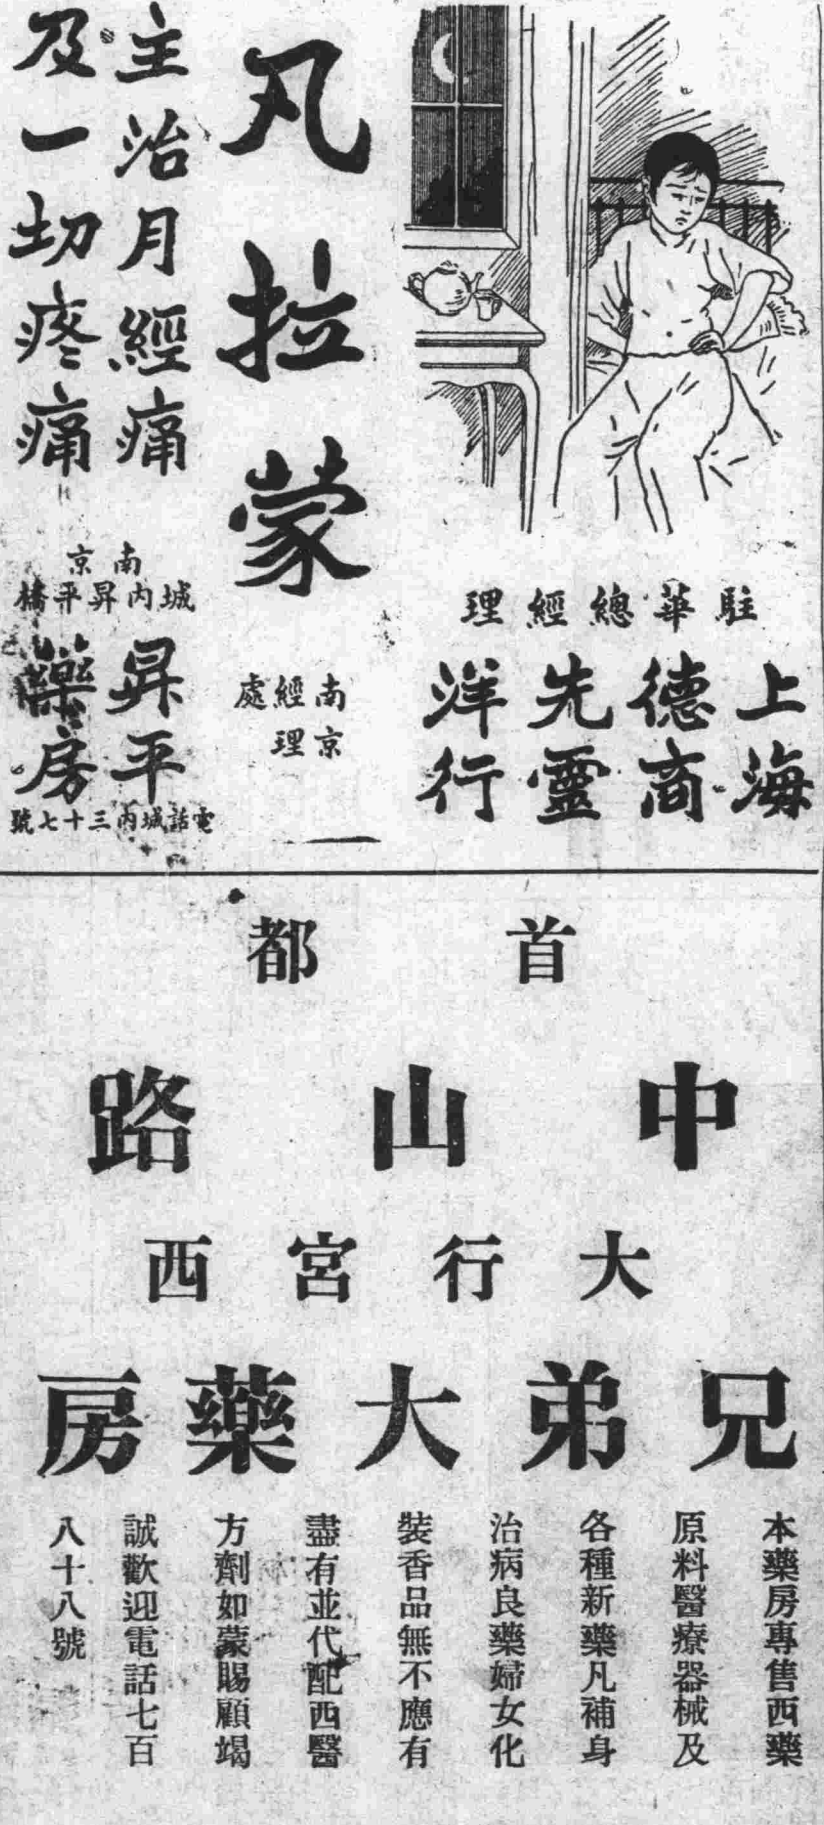 凡拉蒙
主治月經痛
及一切疼痛
駐華總經理
上海
德商
先靈
洋行
南京
經理
處
南京
城内昇平橋
昇平
藥房
電話城内三十七號
首都
中山路
大行宮西
兄弟大藥房
本藥房專售西藥
原料醫療器械及
各種新藥凡補身
治病良藥婦女化
裝香品無不應有
盡有並代配西醫
方劑如蒙賜顧竭
誠歡迎電話七百
八十八號